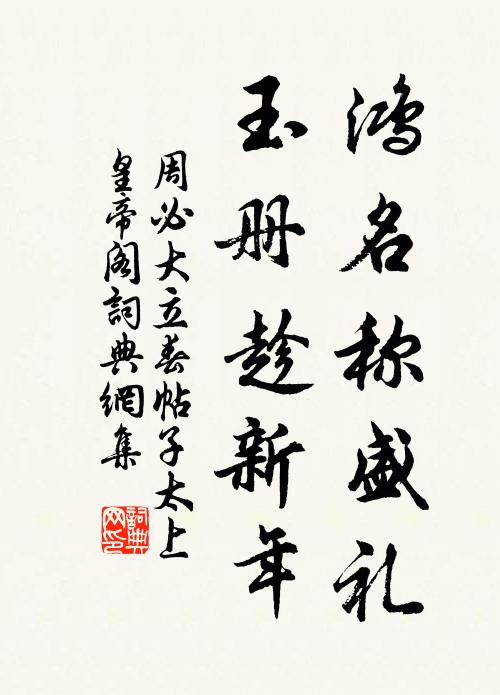 鸿名称盛礼
玉册趁新年
周必大立春帖子太上
皇帝阁詞典網集
詞典网印